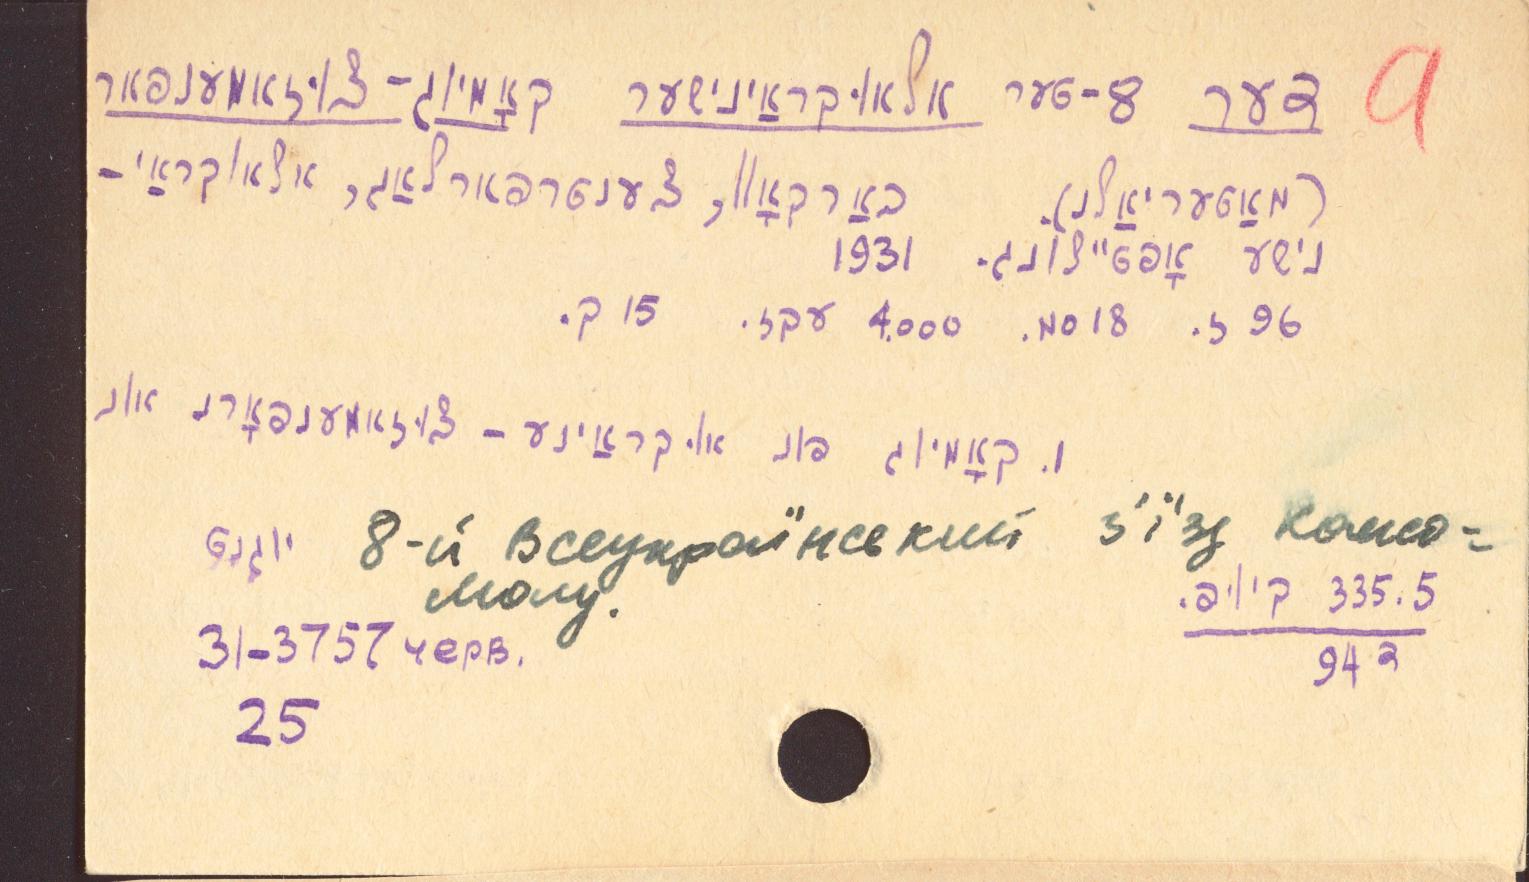 דער 8-טער אלאוקראַינישער קאָמיוג-צוזאמענפאר
(מאַטעריאַלן). כאַרקאָוו, צענטרפארלאַג, אלאוקראַי-
נישע אָפּטיילונג. 1931
96 ז. 18 סמ. 4.000 עקז. 15 ק.
1. קאָמיוג פון אוקראַינע - צוזאמענפאָרן און
יוגנט
8-й Всеукраїнський з'їзд комсо-
молу.
335.5 קיופ.
31-3757 черв.
25